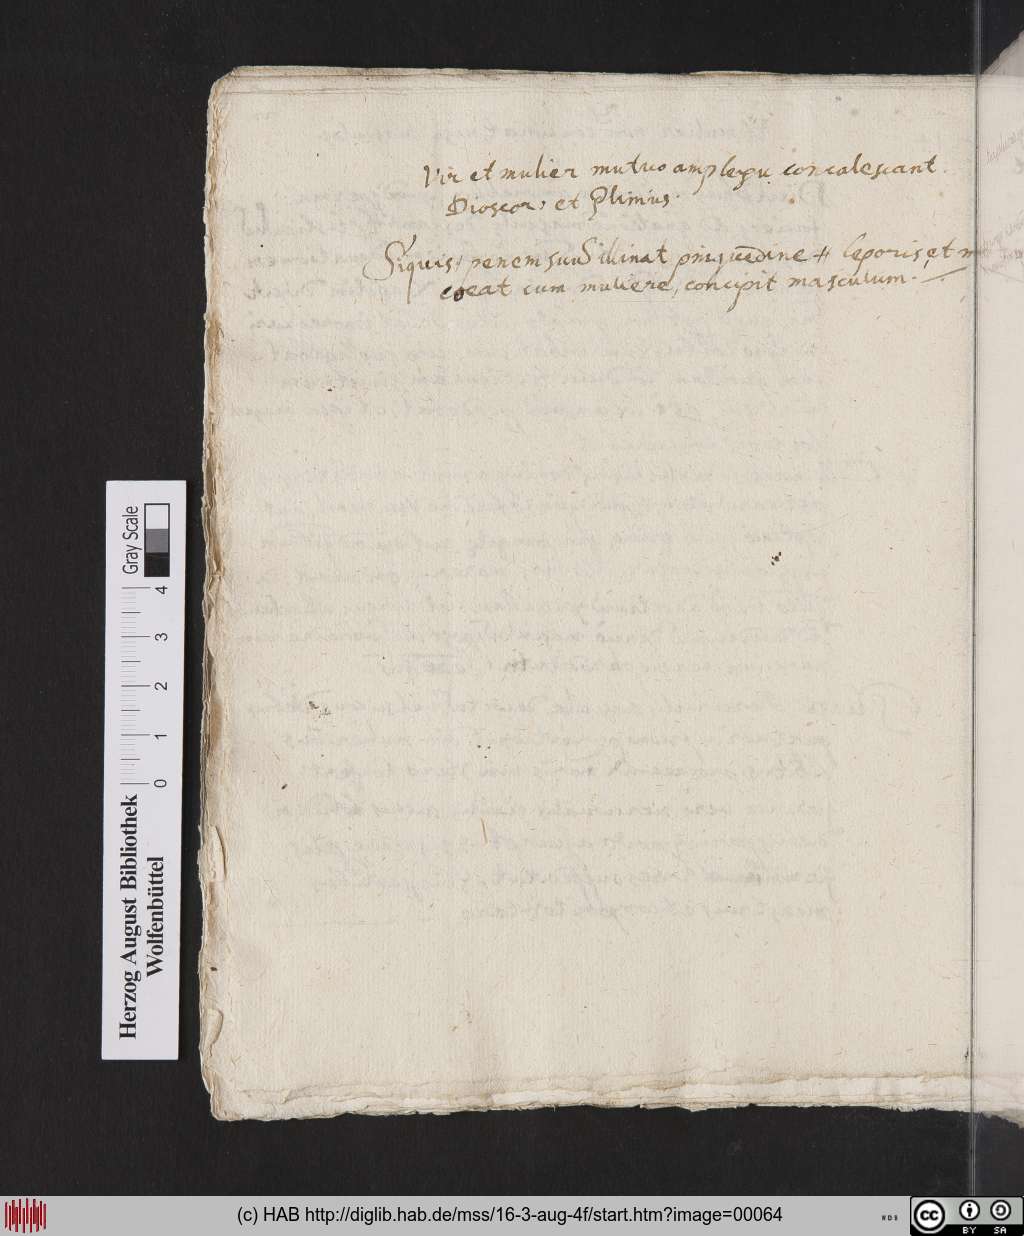 Vir et mulier mutuo amplexu concalescant.
Dioscor: et Plinius.
Siquis penem suu illinat pinguedine leporis, et
coeat cum muliere, concipit masculum.
Gray Scale
4
3
2
1
0
Herzog August Bibliothek
Wolfenbüttel
(c) HAB http://diglib.hab.de/mss/16-3-aug-4f/start.htm?image=00064
WDB
cc
BY SA